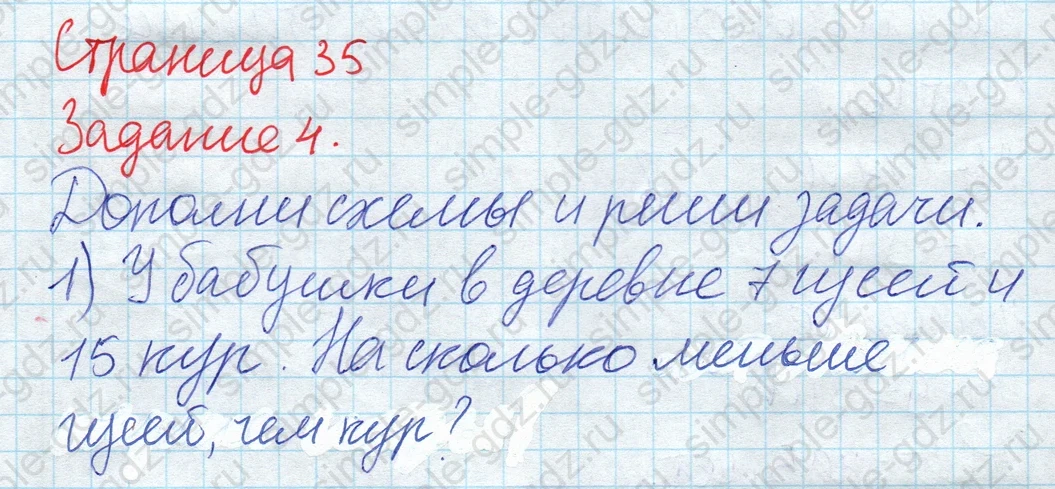 Страница 35
Задание 4.
Дополни схемы и реши задачи.
1) У бабушки в деревне 7 гусей и
15 кур. На сколько меньше
гусей, чем кур?
simple-gdz.ru